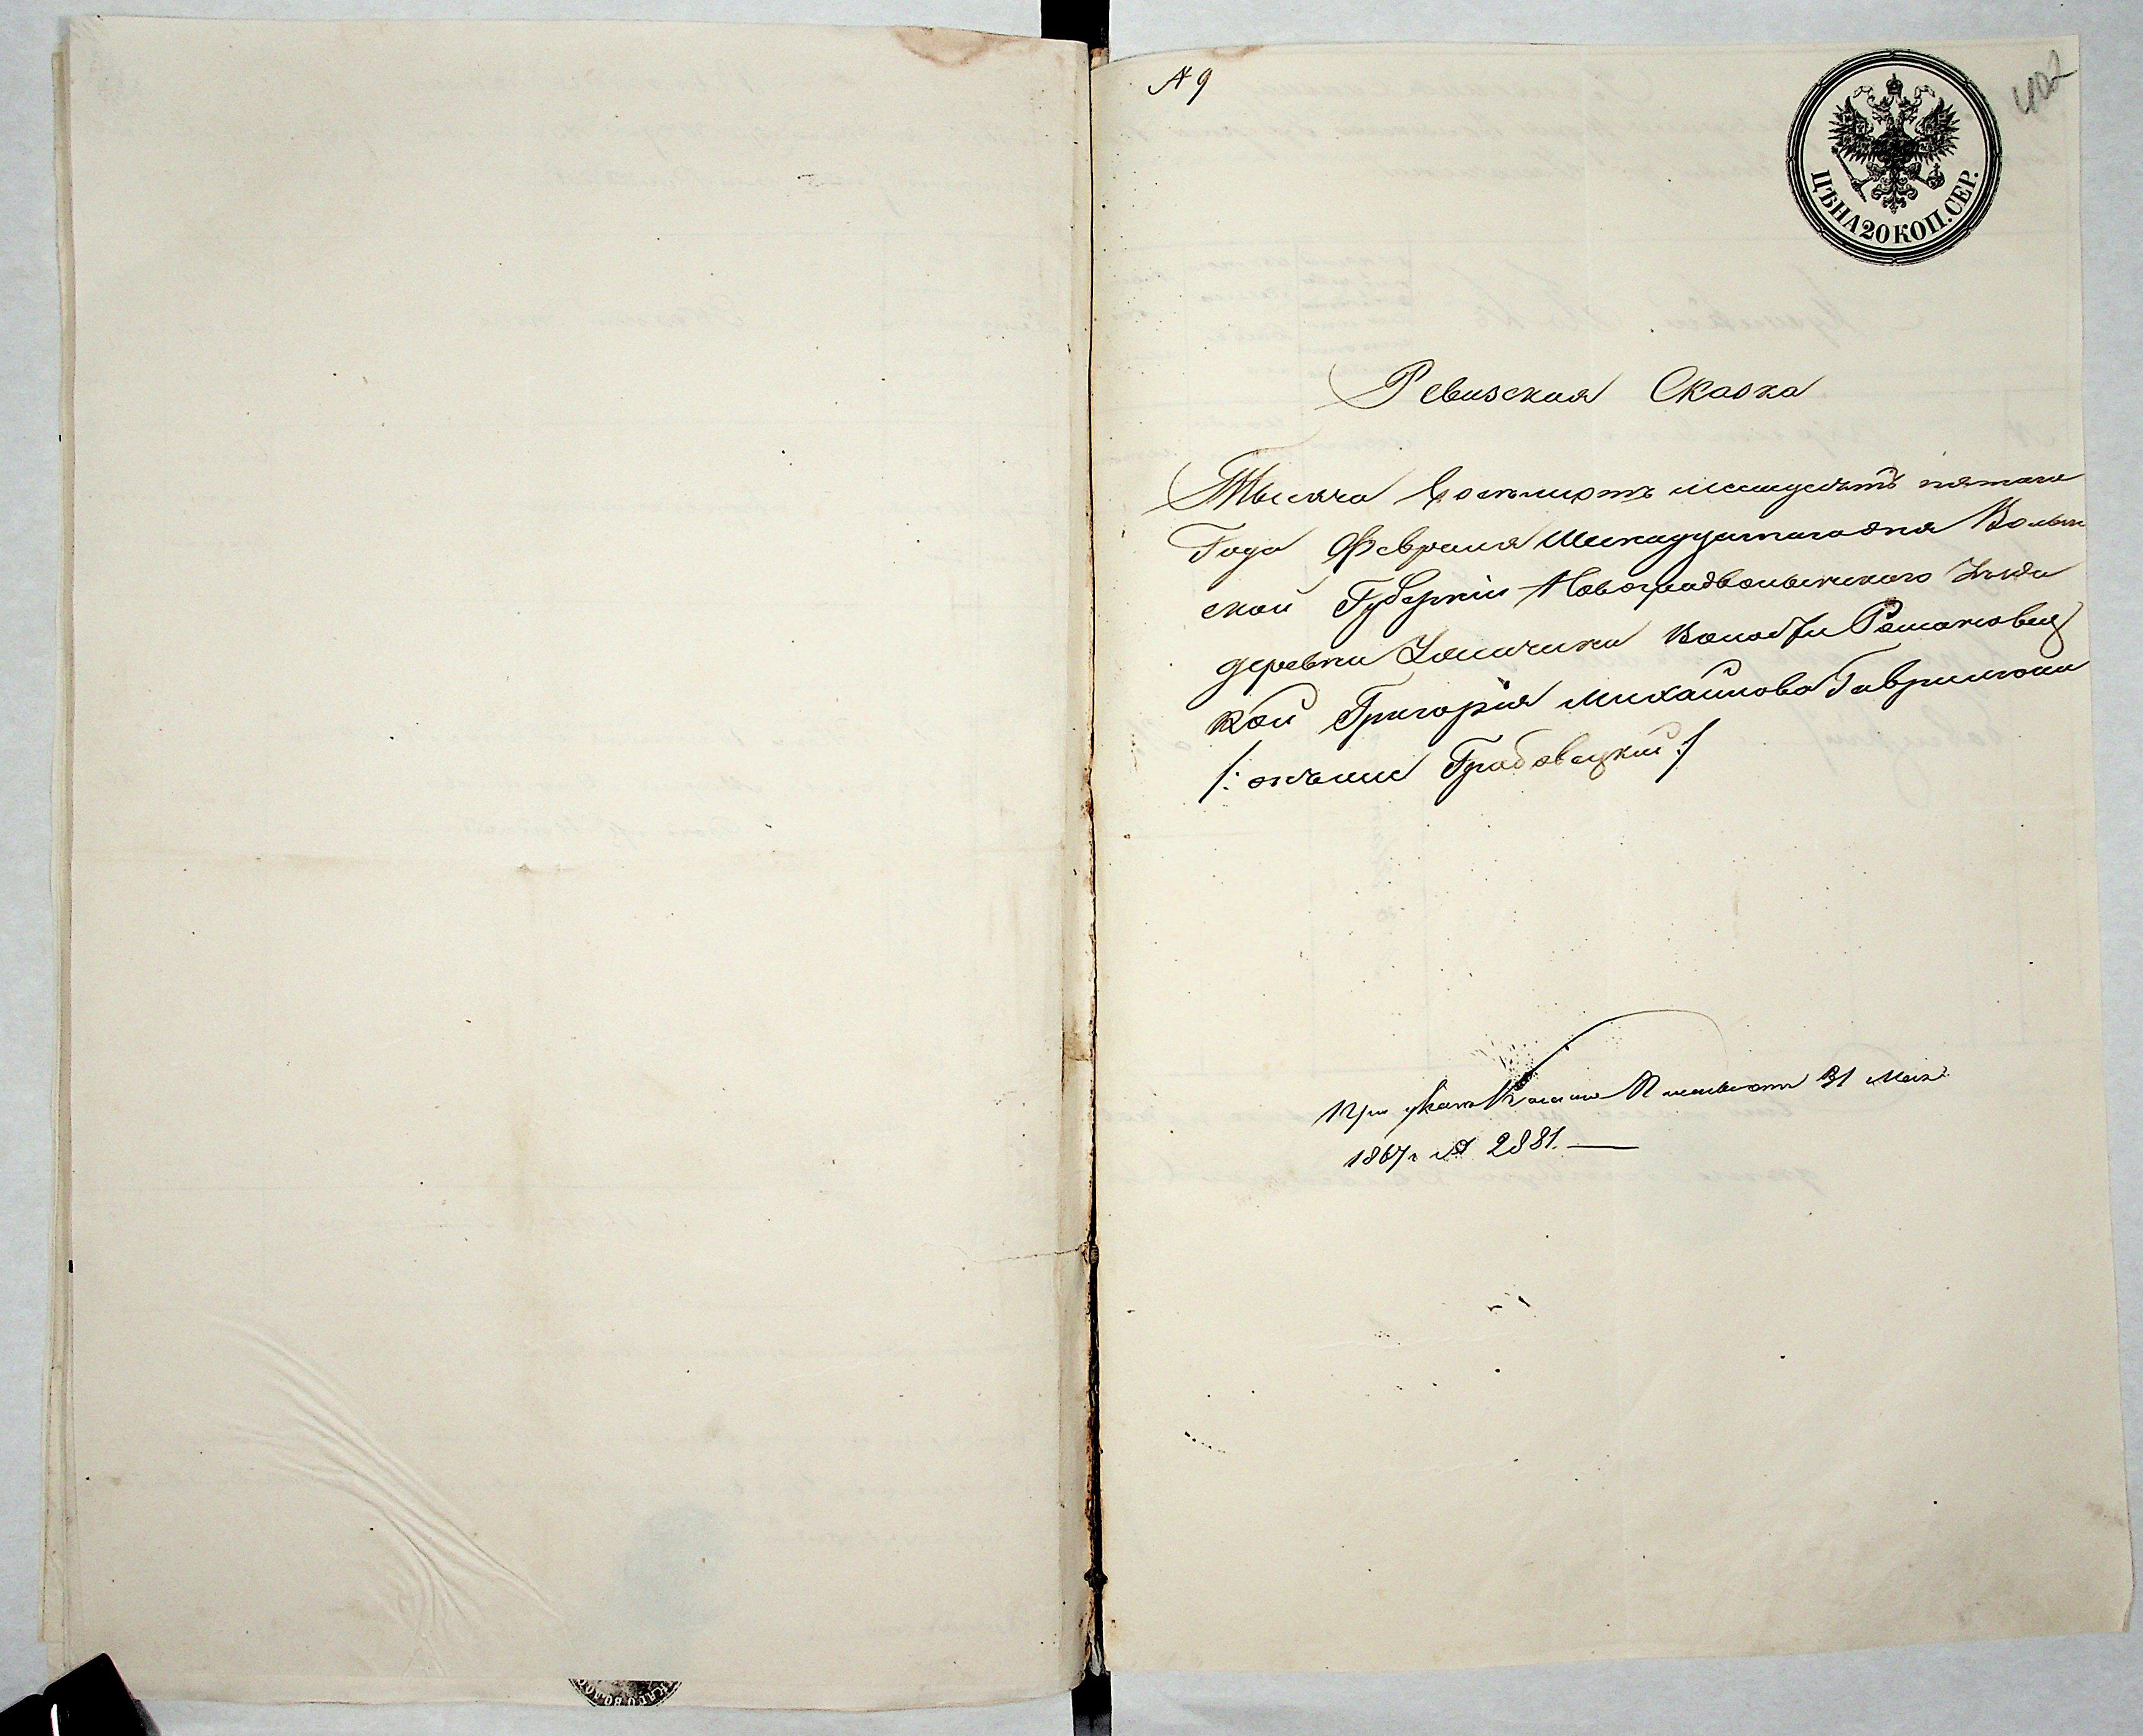 № 9
402
ЦѢНА 20 КОП. СЕР.
Ревизская Сказка
Тысяча Восемьсотъ шестдесятъ пятаго
Года Февраля Шестнадцатагодня Волын
ской Губерніи Новоградволынского Уѣзда
деревни Волости Романовец
кой Григорія Михайлова Гаврилюка
/: онъ же Грабовецкий :/
При указѣ Палаты 31 Мая
1867 г № 2881.